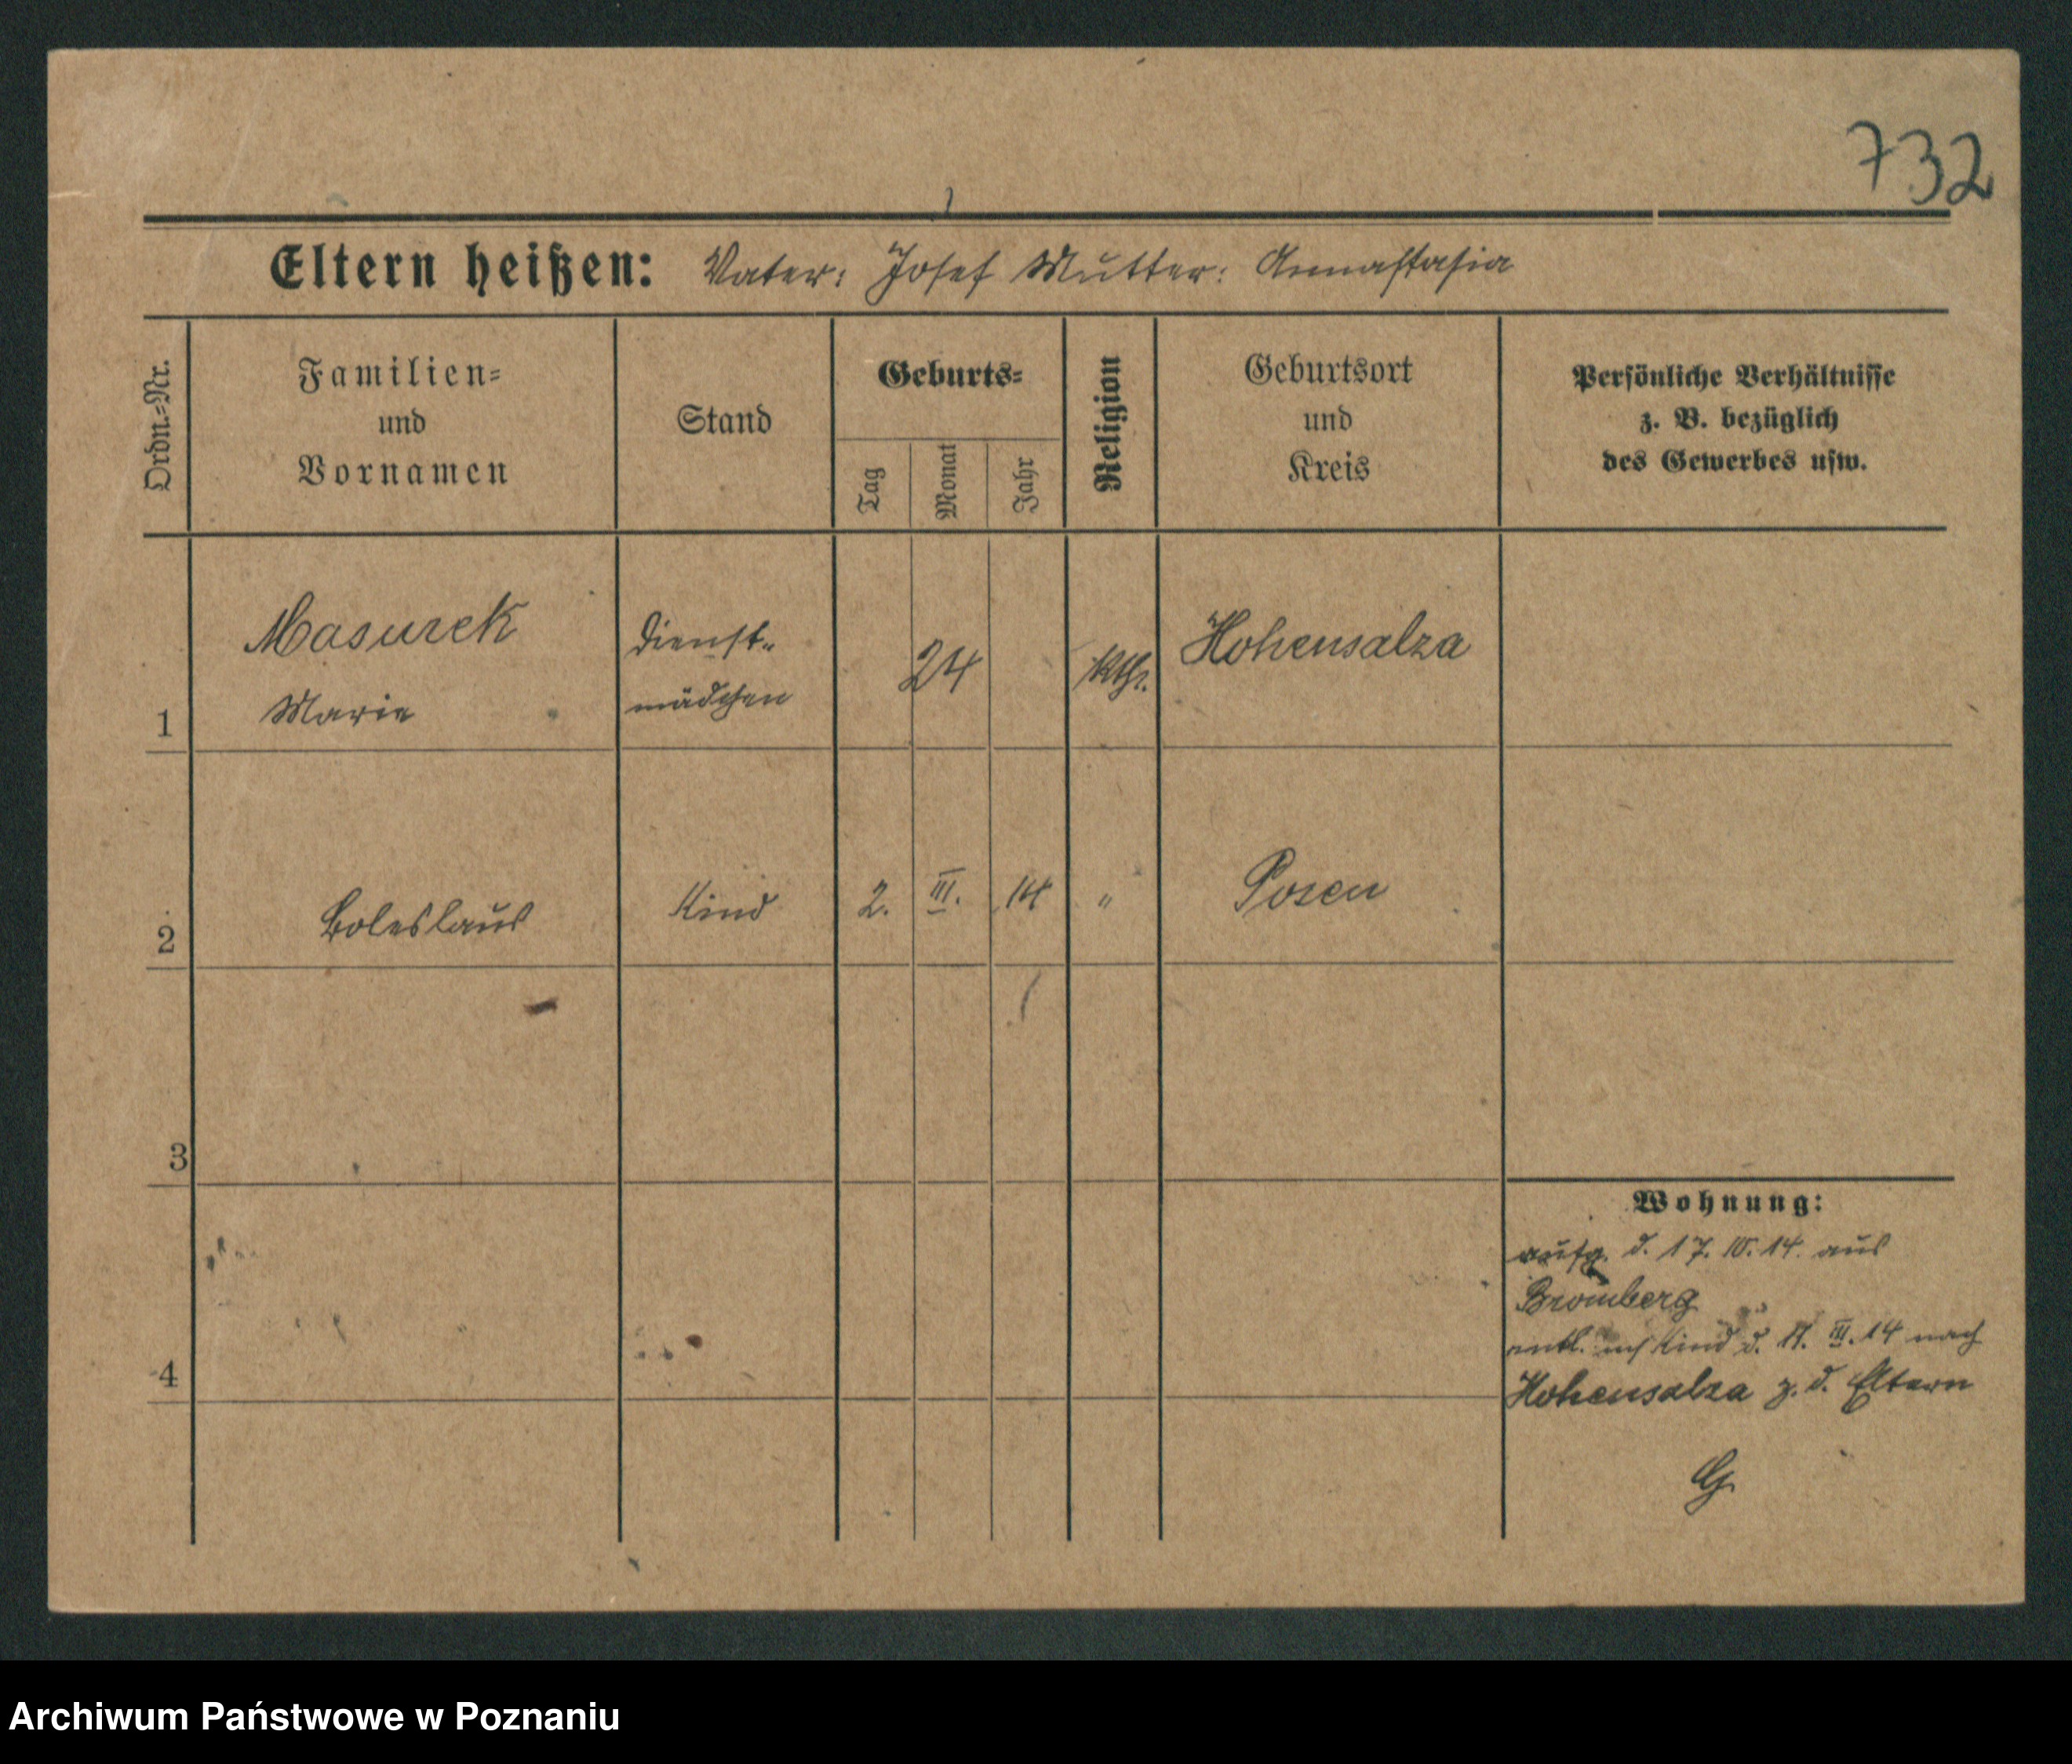 732
Eltern heißen: Vater: Josef Mutter: Annastasia
Ordn.=Nr.
Familien=
und
Vornamen
Stand
Geburts=
Tag
Monat
Jahr
Religion
Geburtsort
und
Kreis
Persönliche Verhältnisse
z. B. bezüglich
des Gewerbes usw.
1
Masurek
Marie
Dienst=
mädchen
24
kth.
Hohensalza
2
Boleslaus
Kind
2.
III.
14
"
Posen
3
4
Wohnung:
aufg. d. 17. 10. 14. aus
Bromberg
entl. Kind d. 11. III. 14 nach
Hohensalza z. d. Eltern
G
Archiwum Państwowe w Poznaniu